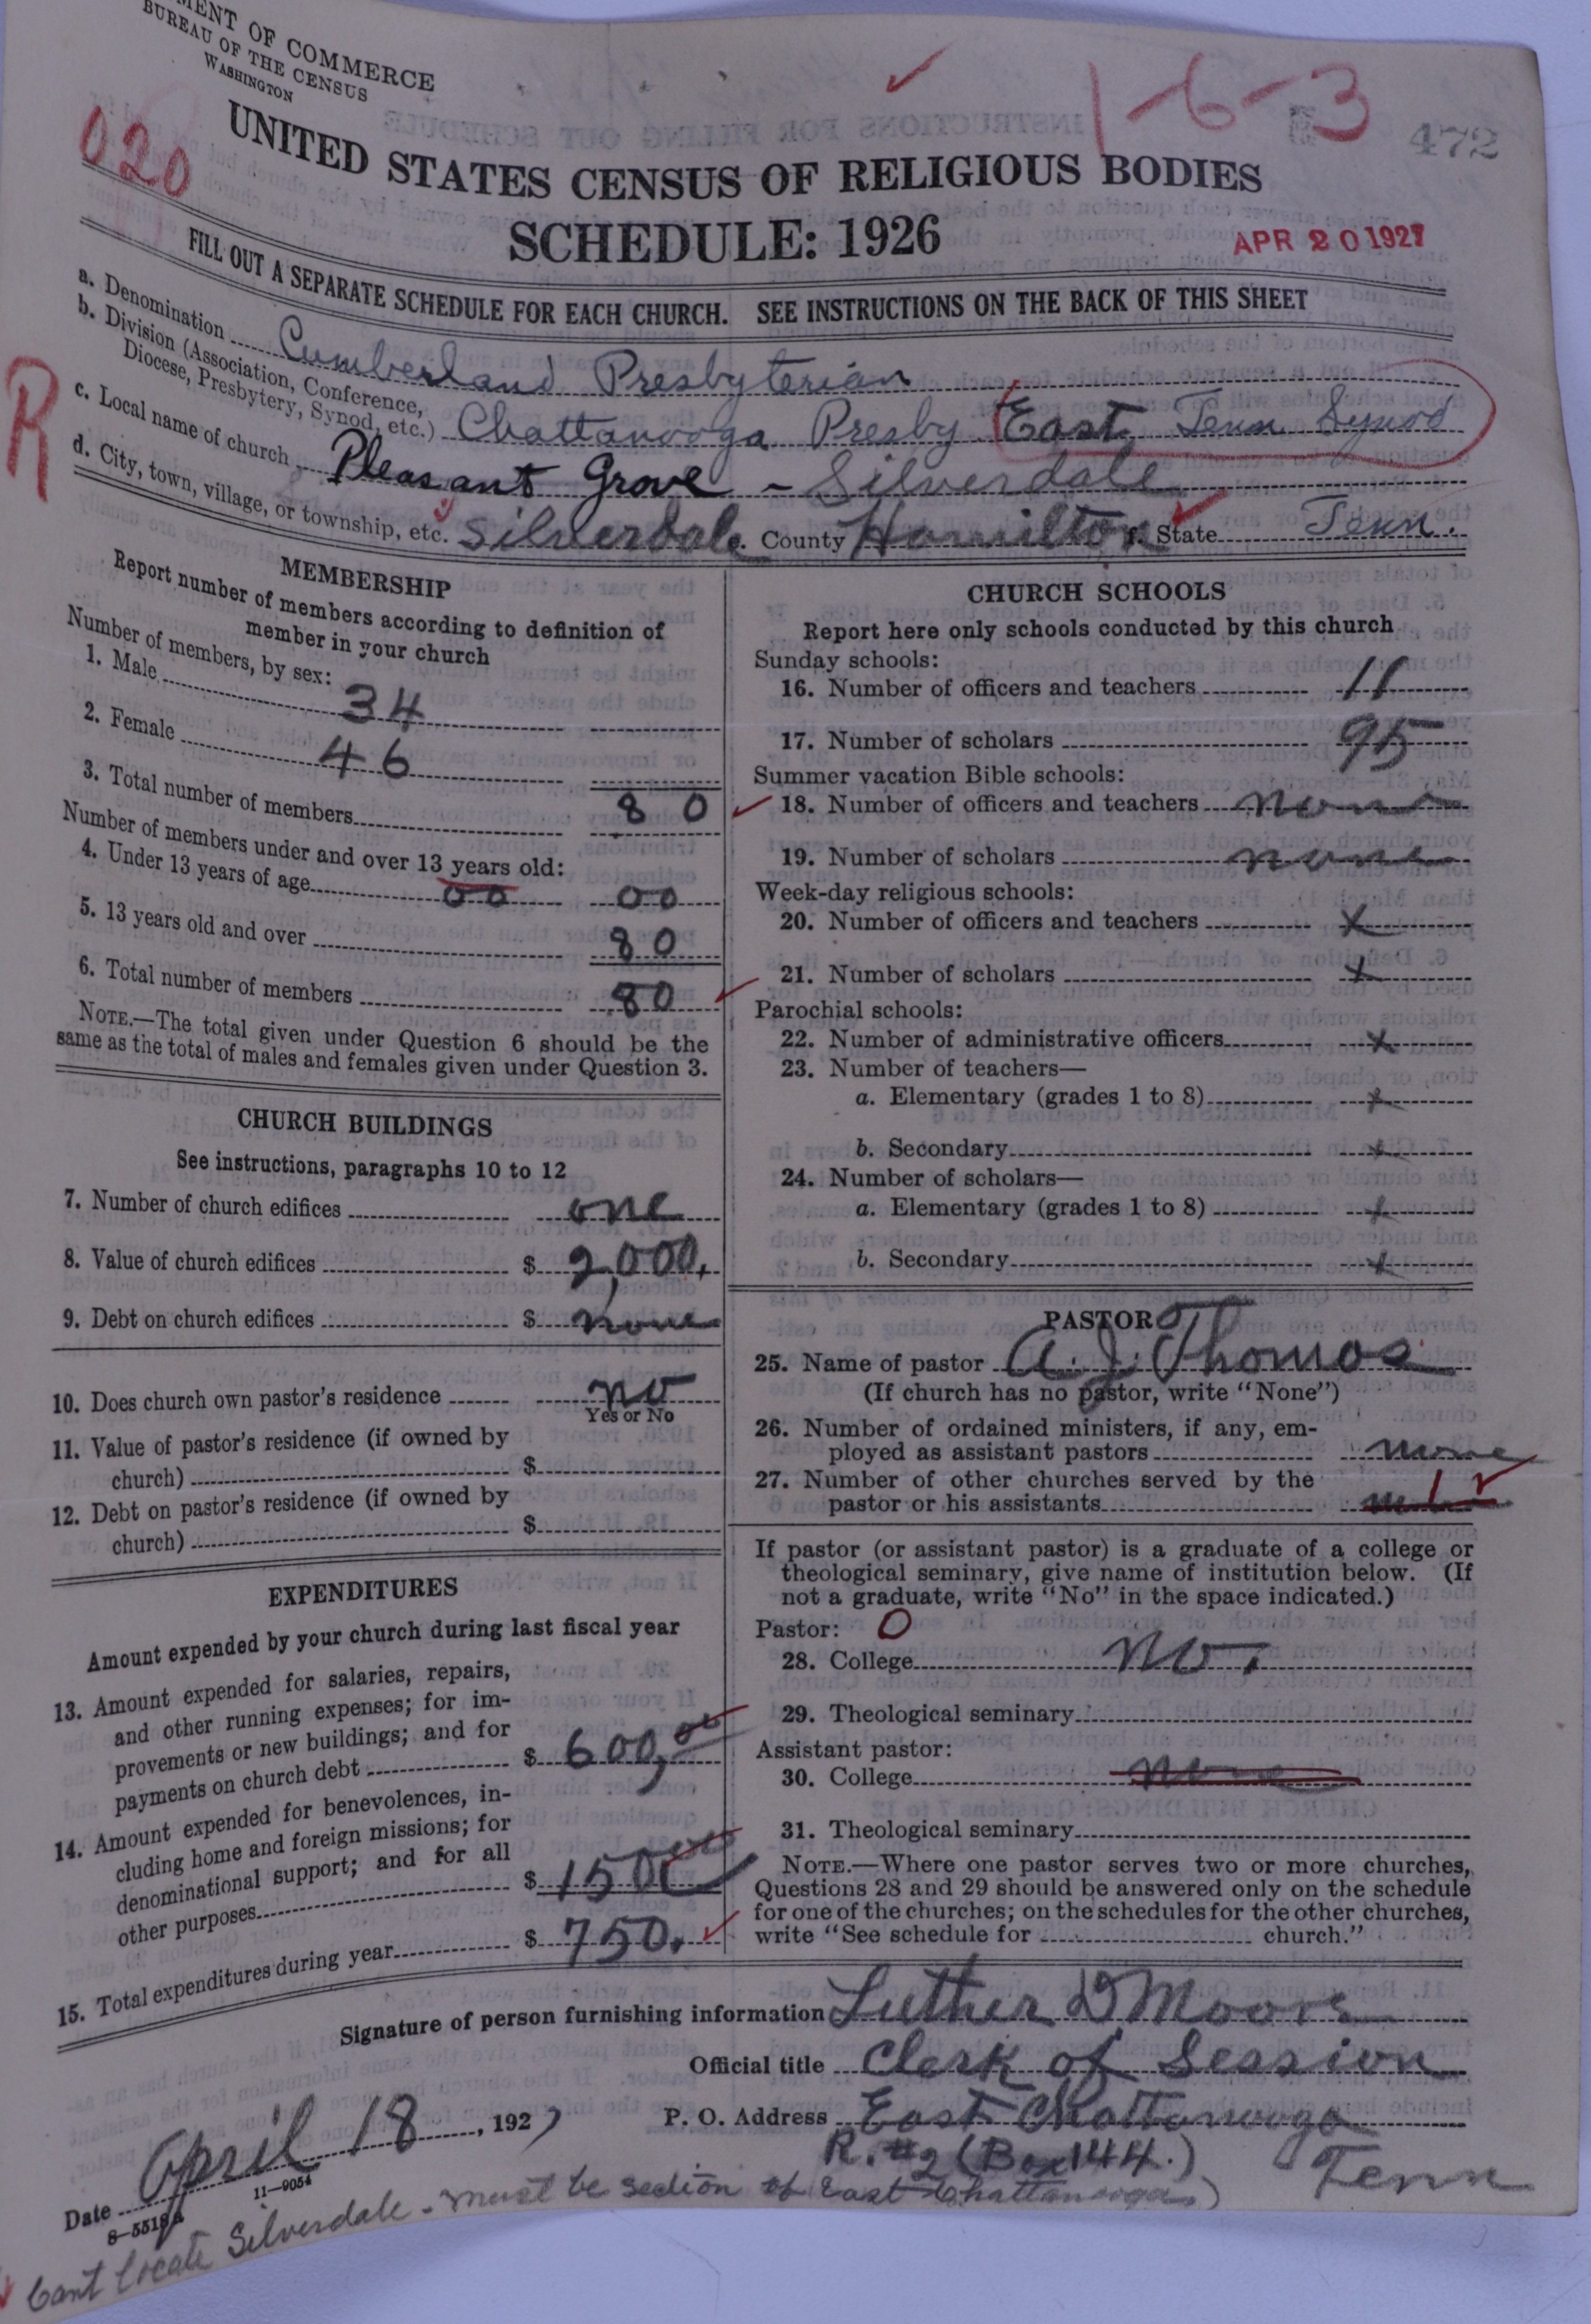 MENT OF COMMERCE
BUREAU OF THE CENSUS
WASHINGTON
1-6-3
472
020
UNITED STATES CENSUS OF RELIGIOUS BODIES
SCHEDULE: 1926
APR 20 1927
FILL OUT A SEPARATE SCHEDULE FOR EACH CHURCH. SEE INSTRUCTIONS ON THE BACK OF THIS SHEET
R
a. Denomination Cumberland Presbyterian
b. Division (Association, Conference,
Diocese, Presbytery, Synod, etc.) Chattanooga Presby East Tenn Synod
c. Local name of church Pleasant Grove - Silverdale
d. City, town, village, or township, etc. Silverdale. County Hamilton State Tenn.
MEMBERSHIP
Report number of members according to definition of
member in your church
Number of members, by sex:
1. Male 34
2. Female 46
3. Total number of members 80
Number of members under and over 13 years old:
4. Under 13 years of age 00 00
5. 13 years old and over 80
6. Total number of members 80
NOTE.—The total given under Question 6 should be the
same as the total of males and females given under Question 3.
CHURCH BUILDINGS
See instructions, paragraphs 10 to 12
7. Number of church edifices one
8. Value of church edifices $ 2,000.
9. Debt on church edifices $ none
10. Does church own pastor's residence no
Yes or No
11. Value of pastor's residence (if owned by
church) $
12. Debt on pastor's residence (if owned by
church) $
EXPENDITURES
Amount expended by your church during last fiscal year
13. Amount expended for salaries, repairs,
and other running expenses; for im-
provements or new buildings; and for
payments on church debt $ 600,00
14. Amount expended for benevolences, in-
cluding home and foreign missions; for
denominational support; and for all
other purposes $ 150 00
15. Total expenditures during year $ 750.
CHURCH SCHOOLS
Report here only schools conducted by this church
Sunday schools:
16. Number of officers and teachers 11
17. Number of scholars 95
Summer vacation Bible schools:
18. Number of officers and teachers none
19. Number of scholars none
Week-day religious schools:
20. Number of officers and teachers x
21. Number of scholars x
Parochial schools:
22. Number of administrative officers x
23. Number of teachers—
a. Elementary (grades 1 to 8) x
b. Secondary x
24. Number of scholars—
a. Elementary (grades 1 to 8) x
b. Secondary x
PASTOR
25. Name of pastor A. J. Thomas
(If church has no pastor, write "None")
26. Number of ordained ministers, if any, em-
ployed as assistant pastors none
27. Number of other churches served by the
pastor or his assistants 1
If pastor (or assistant pastor) is a graduate of a college or
theological seminary, give name of institution below. (If
not a graduate, write "No" in the space indicated.)
Pastor: 0
28. College No.
29. Theological seminary
Assistant pastor:
30. College none
31. Theological seminary
NOTE.—Where one pastor serves two or more churches,
Questions 28 and 29 should be answered only on the schedule
for one of the churches; on the schedules for the other churches,
write "See schedule for church."
Signature of person furnishing information Luther D Moore
Official title Clerk of Session
P. O. Address East Chattanooga
R. #2 (Box 144.) Tenn
Date April 18, 1927
11-9054
8-5518a
Cant locate Silverdale - must be section of East Chattanooga)